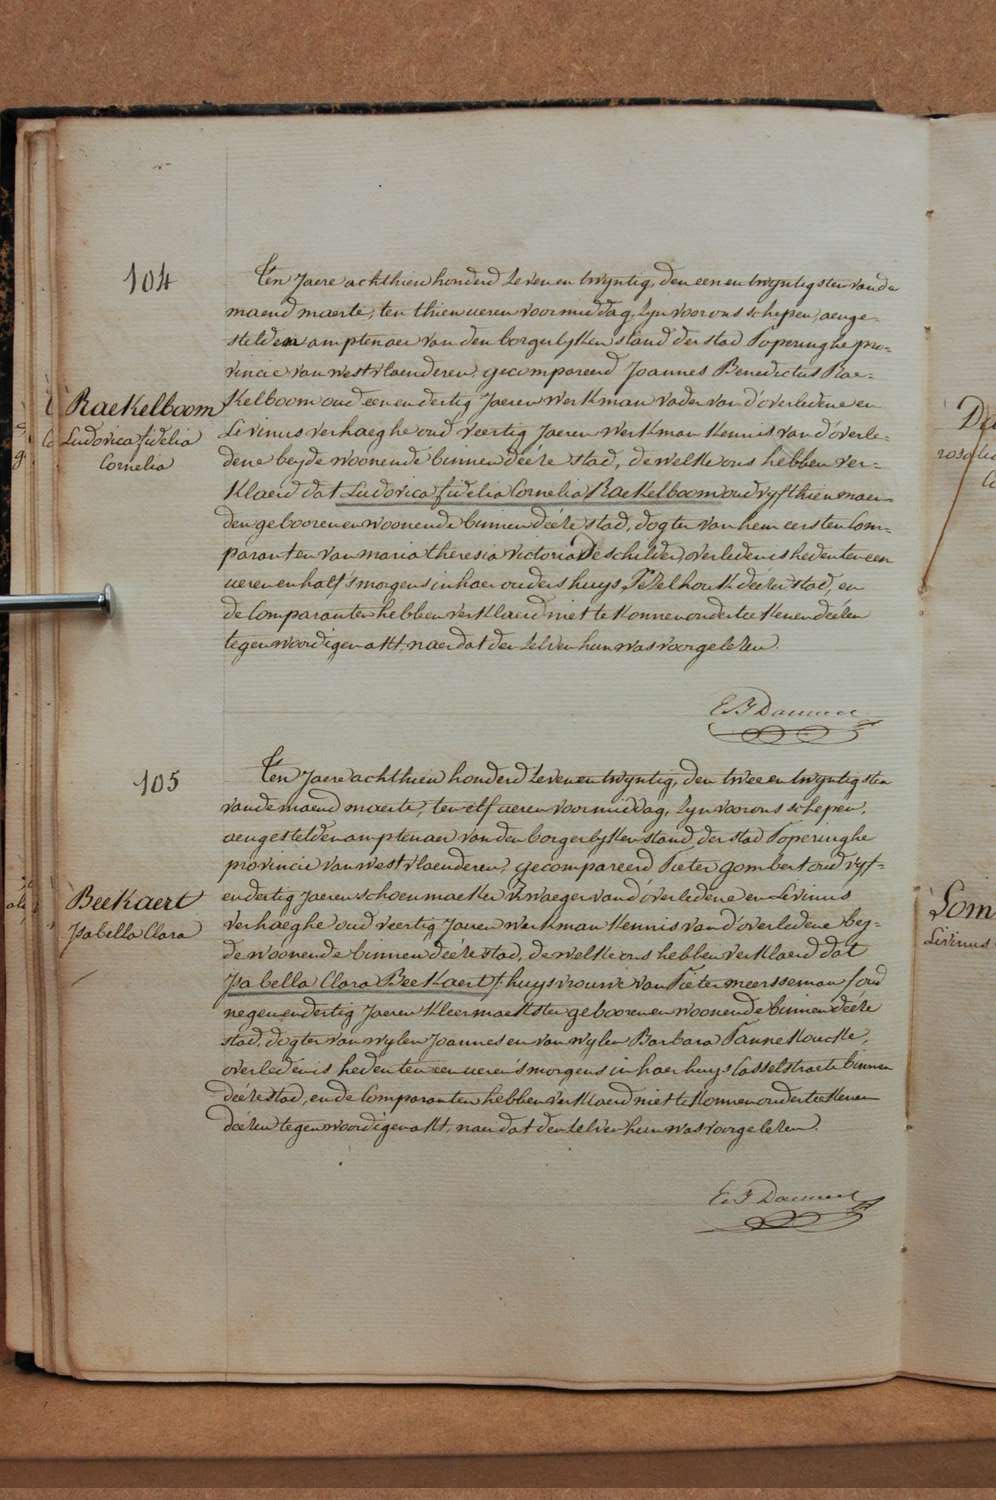 104
Raekelboom
Ludovica fidelia
Cornelia
Ten Jaere achthien honderd zeven en twyntig, den een en twyntigsten van de
maend maerte, ten thien ueren voormiddag, zyn voor ons schepen, aenge-
stelden amptenaer van den borgerlyken stand der stad Poperinghe pro-
vincie van westvlaenderen, gecompareerd Joannes Benedictus Rae-
Kelboom oud een en dertig Jaeren werkman vader van d'overledene en
Livinus verhaeghe oud veertig Jaeren werkman Kennis van d'overle-
dene beyde woonende binnen deéze stad, de welke ons hebben ver-
Klaerd dat Ludovica fidelia Cornelia Raekelboom oud vyfthien maen
den gebooren en woonende binnen deéze stad, dogter van hem eersten Com-
parant en van maria theresia victoria De schilder, overleden is heden ten een
ueren en half 's morgens in haer ouders huys, Pezelhoek deézer stad, en
de Comparanten hebben verklaerd niet te Konnen onderteekenen deézen
tegenwoordigen akt, naer dat den zelven hun was voorgelezen.
105
Beekaert
Isabella Clara
Ten Jaere achthien honderd zeven en twyntig, den twee en twyntigsten
van de maend maerte, ten elf ueren voormiddag, zyn voor ons schepen,
aengestelden amptenaer van den borgerlyken stand der stad Poperinghe
provincie van westvlaenderen, gecompareerd Pieter gombert oud vyf-
en dertig Jaeren schoenmaeker zwaeger van d'overledene en Livinus
verhaeghe oud veertig Jaeren werkman Kennis van d'overledene bey-
de woonende binnen deéze stad, de welke ons hebben verklaerd dat
Isabella Clara Beekaert huysvrouwe van Pieter meersseman oud
negen en dertig Jaeren Kleermaekster gebooren en woonende binnen deéze
stad, dogter van wylen Joannes en van wylen Barbara Pannekoucke,
overleden is heden ten een ueren 's morgens in haer huys Casselstraete binnen
deéze stad, en de Comparanten hebben verklaerd niet te Konnen onderteekenen
deézen tegenwoordigen akt, naer dat den zelven hun was voorgelezen.
Livinus